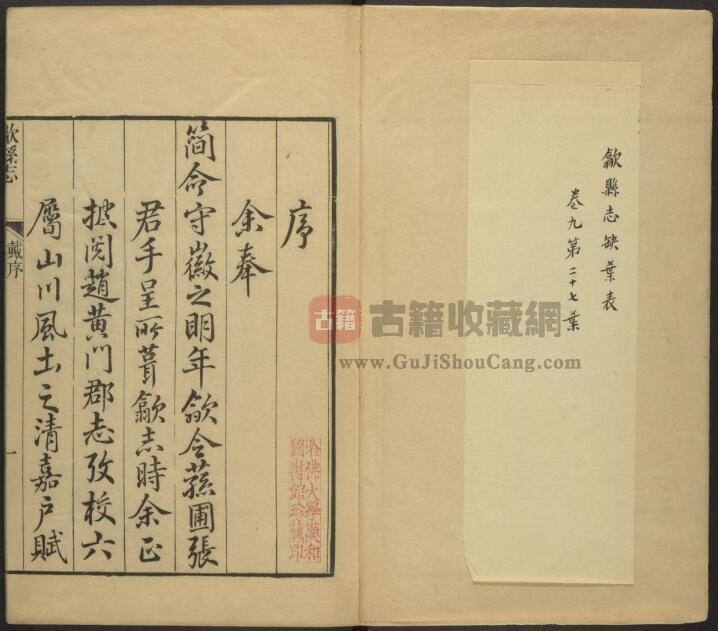 歙縣志缺葉表
卷九第二十七葉
序
余奉
簡命守徽之明年歙令蓀圃張
君手呈所葺歙志時余正
披閱趙黃門郡志攷校六
屬山川風土之清嘉戶賦
歙縣志
戴序
一
哈佛大學漢和
圖書館珍藏印
古籍
古籍收藏網
www.GuJiShouCang.com